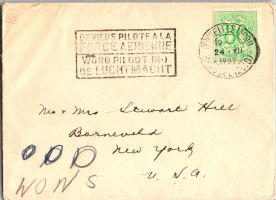 DEVIENS PILOTE A LA
FORCE AERIENNE
WORD PILOOT BIJ
DE LUCHTMACHT
24 - XII
Mr & Mrs Stewart Hill
Barneveld
New York
U. S. A.
O D D
W O N S